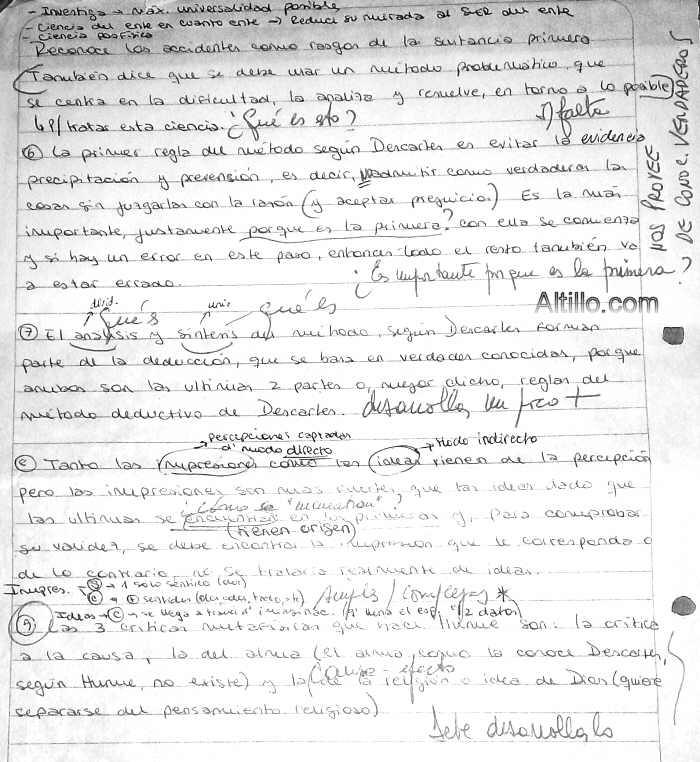 - Investiga → Máx. universalidad posible
- Ciencia del ente en cuanto ente → Reduci su mirada al SER del ente
- Ciencia
Reconoce los accidentes como rasgos de la sustancia primera
También dice que se debe usar un método problemático, que
se centra en la dificultad, la analiza y resuelve, en torno a lo posible)
p/tratar esta ciencia. ¿Qué es esto? falta
⑥ La primer regla del método según Descartes es evitar la evidencia
precipitación y prevención, es decir, admitir como verdaderas las
cosas sin juzgarlas con la razón (y aceptar prejuicios.) Es la más
importante, justamente porque es la primera? con ella se comienza
y si hay un error en este paso, entonces todo el resto también va
a estar errado. ¿Es importante porque es la primera?
NOS PROVEE
DE CONOC. VERDADEROS
Altillo.com
divid. unir
Qué es qué es
⑦ El análisis y síntesis del método, según Descartes forman
parte de la deducción, que se basa en verdades conocidas, porque
ambos son las ultimas 2 partes o, mejor dicho, reglas del
método deductivo de Descartes. desarrolla un poco +
percepciones captadas
d' modo directo
Modo indirecto
⑧ Tanto las impresiones como las ideas vienen de la percepción
pero las impresiones son mas fuertes que las ideas dado que
¿Cómo se
las ultimas se encuentran en las primeras y, para comprobar
(tienen origen)
su validez, se debe encontrar la impresion que le corresponda o
de lo contrario no se trataria realmente de ideas.
Impres. Ⓢ → 1 solo sentido
Ⓒ → sentidos
Simples / complejas *
Ideas → Ⓒ → se llega a traves d'
⑨ Las 3 criticas metafisicas que hace Hume son: la critica
a la causa, la del alma (el alma, como la conoce Descartes,
causa - efecto
según Hume, no existe) y la de la religión o idea de Dios (quiere
separarse del pensamiento religioso)
Debe desarrollarlo